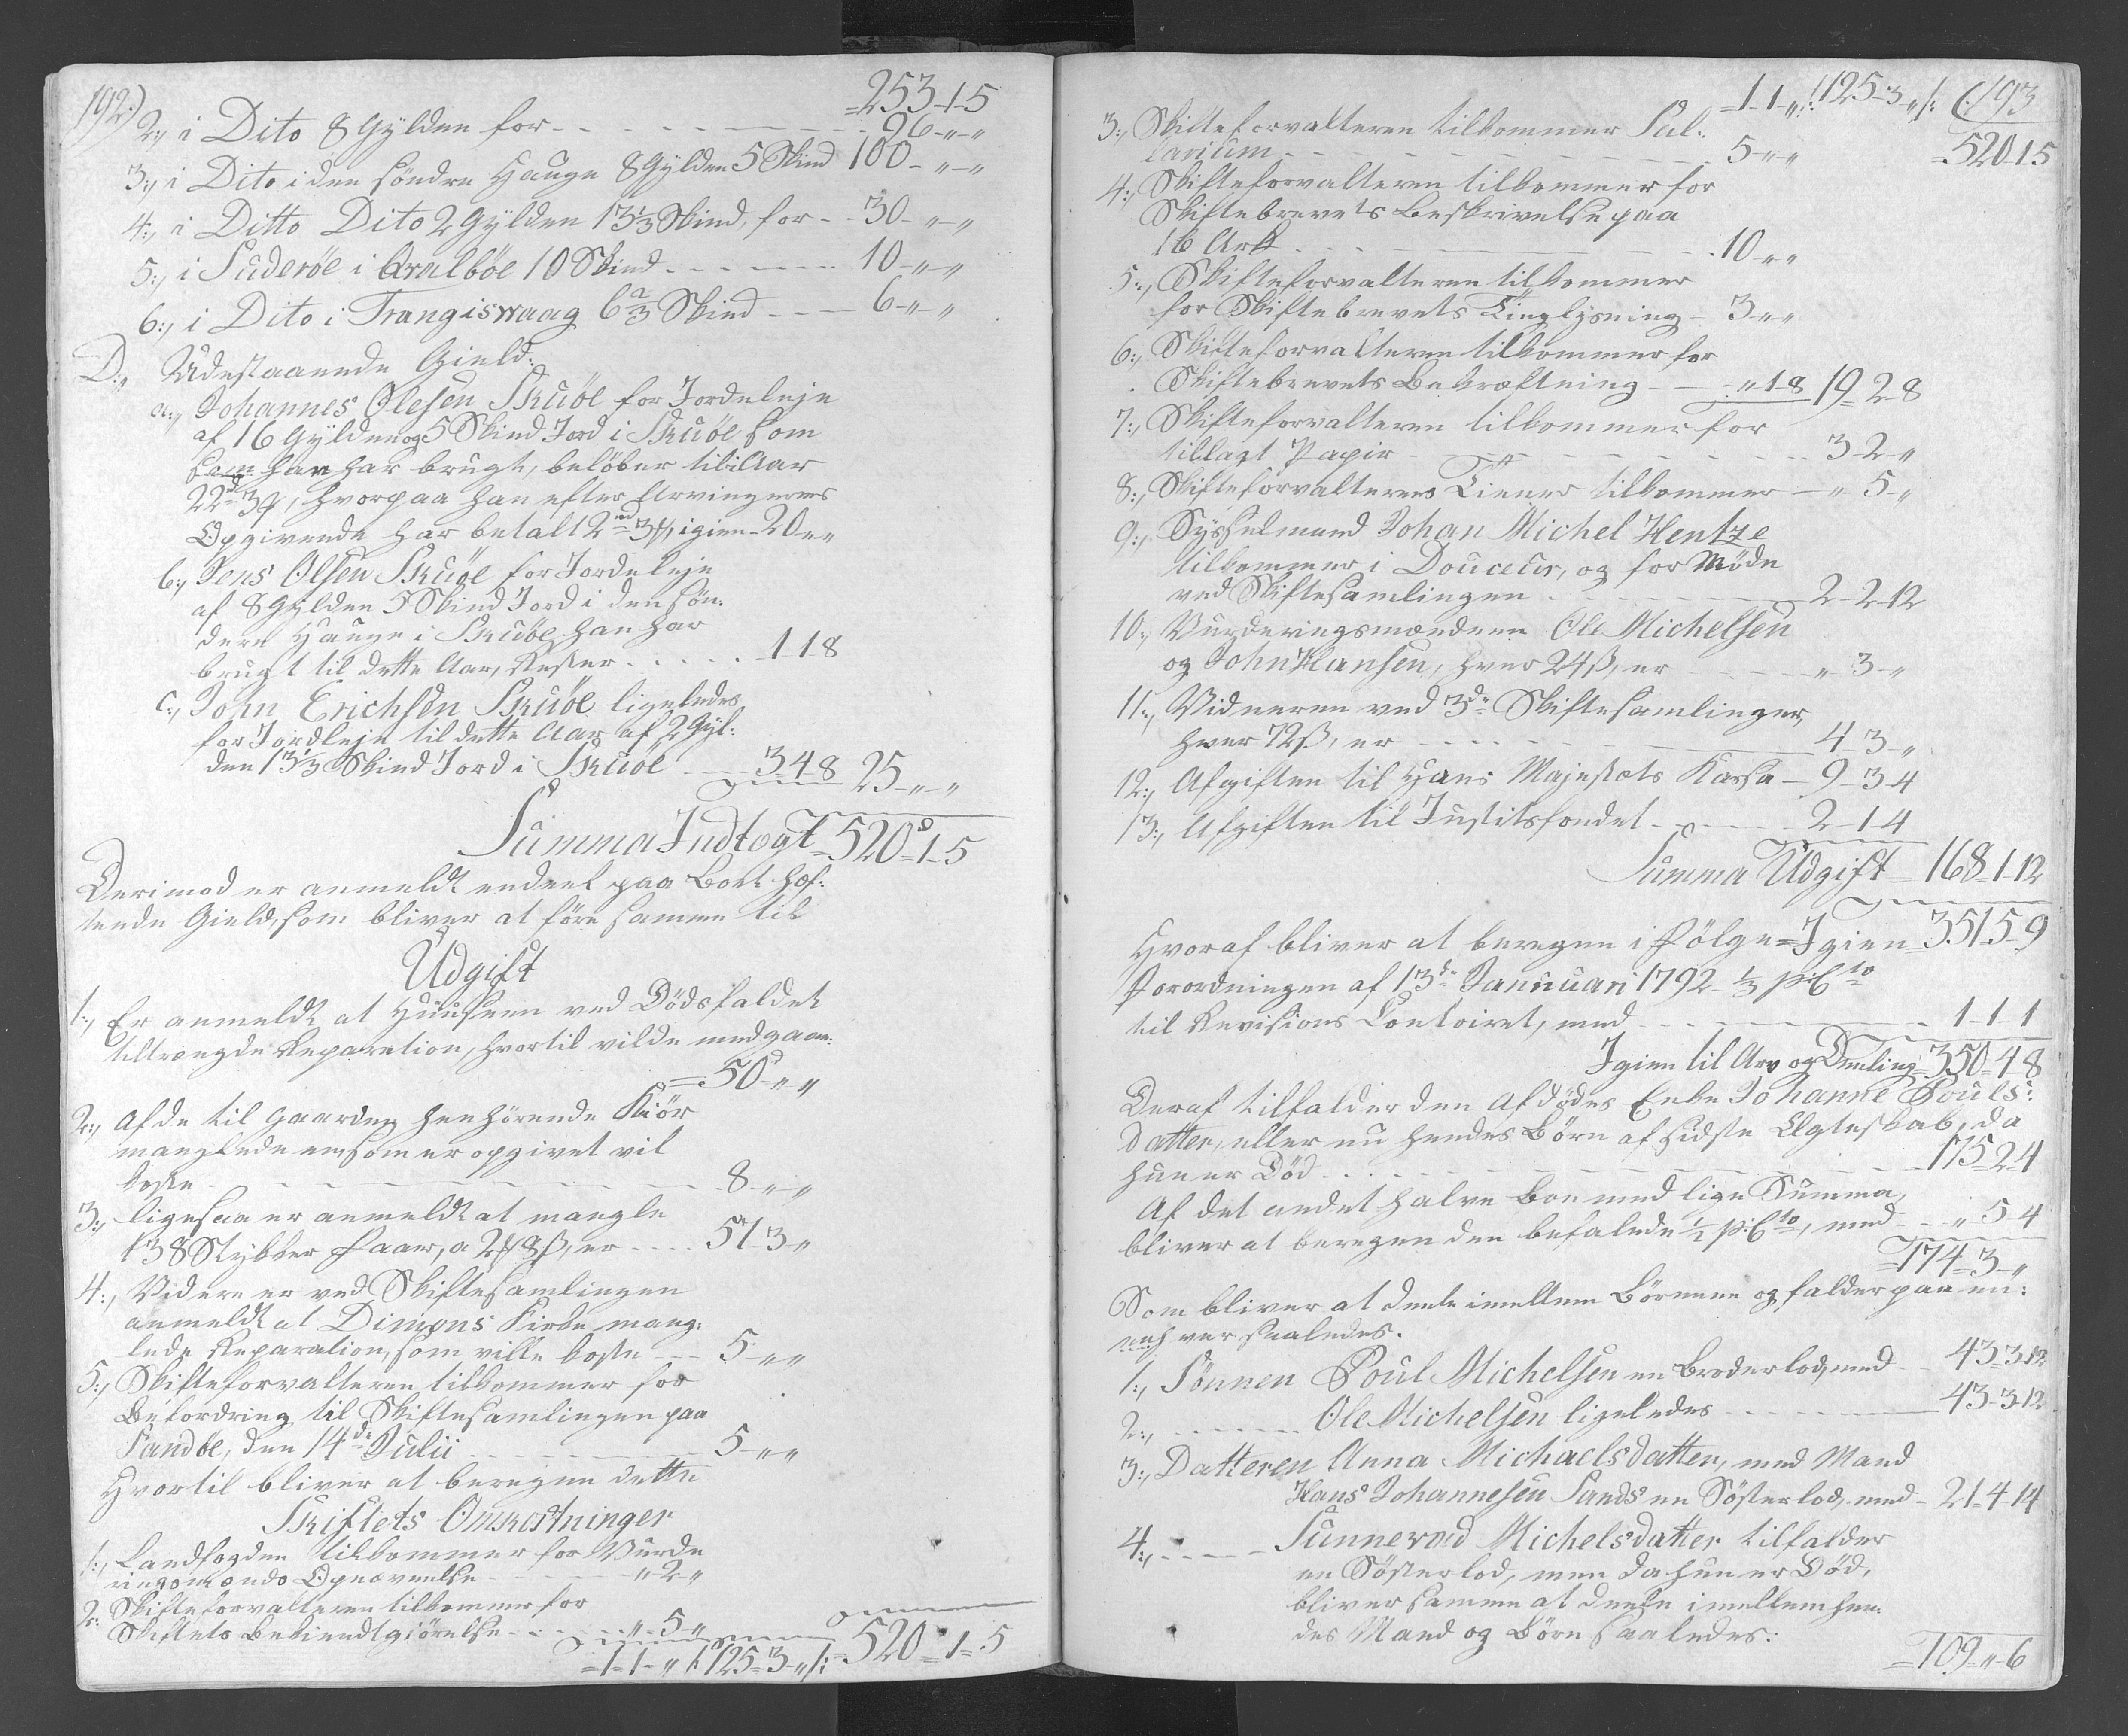 192.)
=253-1-5
2:, i Dito 8 Gylden for - - - 96-"-"
3:, i Dito i den söndre Hauge 8 Gylden 5 Skind 100-"-"
4:, i Ditto Dito 2 Gylden 13 1/3 Skind, for - - 30-"-"
5:, i Suderöe i Qvalböe 10 Skind - - - 10-"-"
6:, i Dito i Trangiswaag 6 2/3 Skind - - - 6-"-"
D:, Udestaaende Gield:
a:, Johannes Olesen Skuöe for Jordeleje
af 16 Gylden og 5 Skind Jord i Skuöe som
han har brugt, beløber til i Aar
22 3, hvorpaa han efter Arvingernes
Opgivende har betalt 2 3, igien 20-"-"
b:, Jens Olsen Skuöe for Jordeleje
af 8 Gylden 5 Skind Jord i den Søn-
dere Hauge i Skuöe han har
brugt til dette Aar, Rester - - - 1-1-8
c:, John Erichsen Skuöe ligeledes
for Jordleje til dette Aar af 2 Gyl:
den 13 1/3 Skind Jord i Skuöe - 3-4-8 25-"-"
Summa Indtægt = 520-1-5
Derimod er anmeldt endeel paa Boet hæf:
tende Gield, som bliver at føre samme til
Udgift
1:, Er anmeldt at Huusene ved Dødsfaldet
tiltrængde Reparation, hvortil vilde medgaae:
=50-"-"
2:, Af de til Gaarden henhörende Kiör
manglede een som er opgivet vil
koste - - - 8-"-"
3:, ligesaa er anmeldt at mangle
138 Stykker Faar, a 2 8ß, er - - - 51-3-"
4:, Videre er ved Skiftesamlingen
anmeldt at Dimons Kirke mang:
lede Reparation, som ville koste - - 5-"-"
5:, Skifteforvalteren tilkommer for
Befordring til Skiftesamlingen paa
Sandöe, den 14de Julii - - - 5-"-"
Hvortil bliver at beregne dette
Skiftets Omkostninger
1:, Landfogden tilkommer for Vurde
ringsmænds Opnævnelse - - - "-2-"
2: Skifteforvalteren tilkommer for
Skiftets Bekiendtgiörelse - - - "-5-"
=1-1-" /:125-3-":/ =520-1-5
=1-1-" /:125-3-":/ (:193
3:, Skifteforvalteren tilkommer Sal:
larium - - - 5-"-" =520-1-5
4:, Skifteforvalteren tilkommer for
Skiftebrevets Beskrivelse paa
16 Ark - - - 10-"-"
5:, Skifteforvalteren tilkommer
for Skiftebrevets Tinglysning - 3-"-"
6:, Skifteforvalteren tilkommer for
Skiftebrevets Bekræftning - - "-1-8 19-2-8
7:, Skifteforvalteren tilkommer for
tillagt Papir - - - 3-2-"
8:, Skifteforvalterens Tiener tilkommer - "-5-"
9:, Sysselmand Johan Michel Hentze
tilkommer i Douceur, og for Møde
ved Skiftesamlingen - - - 2-2-12
10:, Vurderingsmændene Ole Michelsen
og John Hansen, hver 24ß, er - - - "-3-"
11:, Vidnerne ved 3de Skiftesamlinger,
hver 72ß, er - - - 4-3-"
12:, Afgiften til Hans Majestæts Kassa - 9-3-4
13:, Afgiften til Justitsfondet - - - 2-1-4
Summa Udgift - 168-1-12
Hvoraf bliver at beregne i Følge = Igien = 351-5-9
Forordningen af 13de Januari 1792 - 1/3 p:Cto
til Revisions Contoiret, med - - - 1-1-1
Igien til Arv og Deeling = 350-4-8
Deraf tilfalder den Afdødes Enke Johanne Pouls:
datter, eller nu hendes Børn af sidste Ægteskab, da
hun er Död - - - 175-2-4
Af det andet halve Boe med lige Summa,
bliver at beregne den befalede 1/2 p:Cto, med - - "-5-4
=174-3-"
Som bliver at deele imellem Börnene og falder paa en:
enhver saaledes.
1:, Sönnen Poul Michelsen en Broderlod, med - - 43-3-12
2:, - - - Ole Michelsen ligeledes - - - 43-3-12
3:, Datteren Anna Michaelsdatter, med Mand
Hans Johannesen Sands en Søsterlod, med - 21-4-14
4:, - - - Sunnevad Michelsdatter tilfalder
en Søsterlod, men da hun er Død,
bliver samme at deele imellem hen:
des Mand og Børn saaledes:
=109-"-6